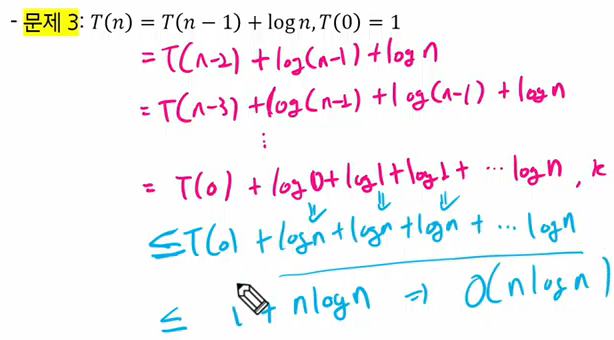 - 문제 3: T(n) = T(n − 1) + log n, T(0) = 1
= T(n-2) + log(n-1) + log n
= T(n-3) + log(n-2) + log(n-1) + log n
⋮
= T(0) + log0 + log1 + log2 + ⋯ log n , k
≤ T(0) + log n + log n + log n + ⋯ log n
≤ 1 + n log n ⇒ O(n log n)